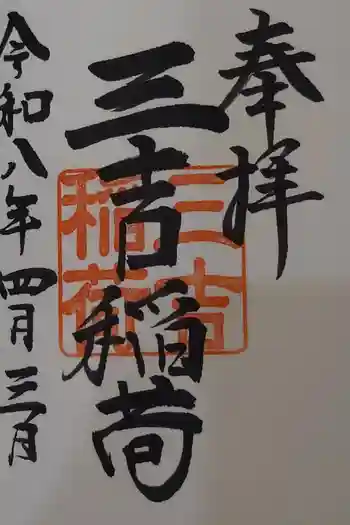 奉拝
三吉稲荷
三吉
稲荷
令和八年四月三日